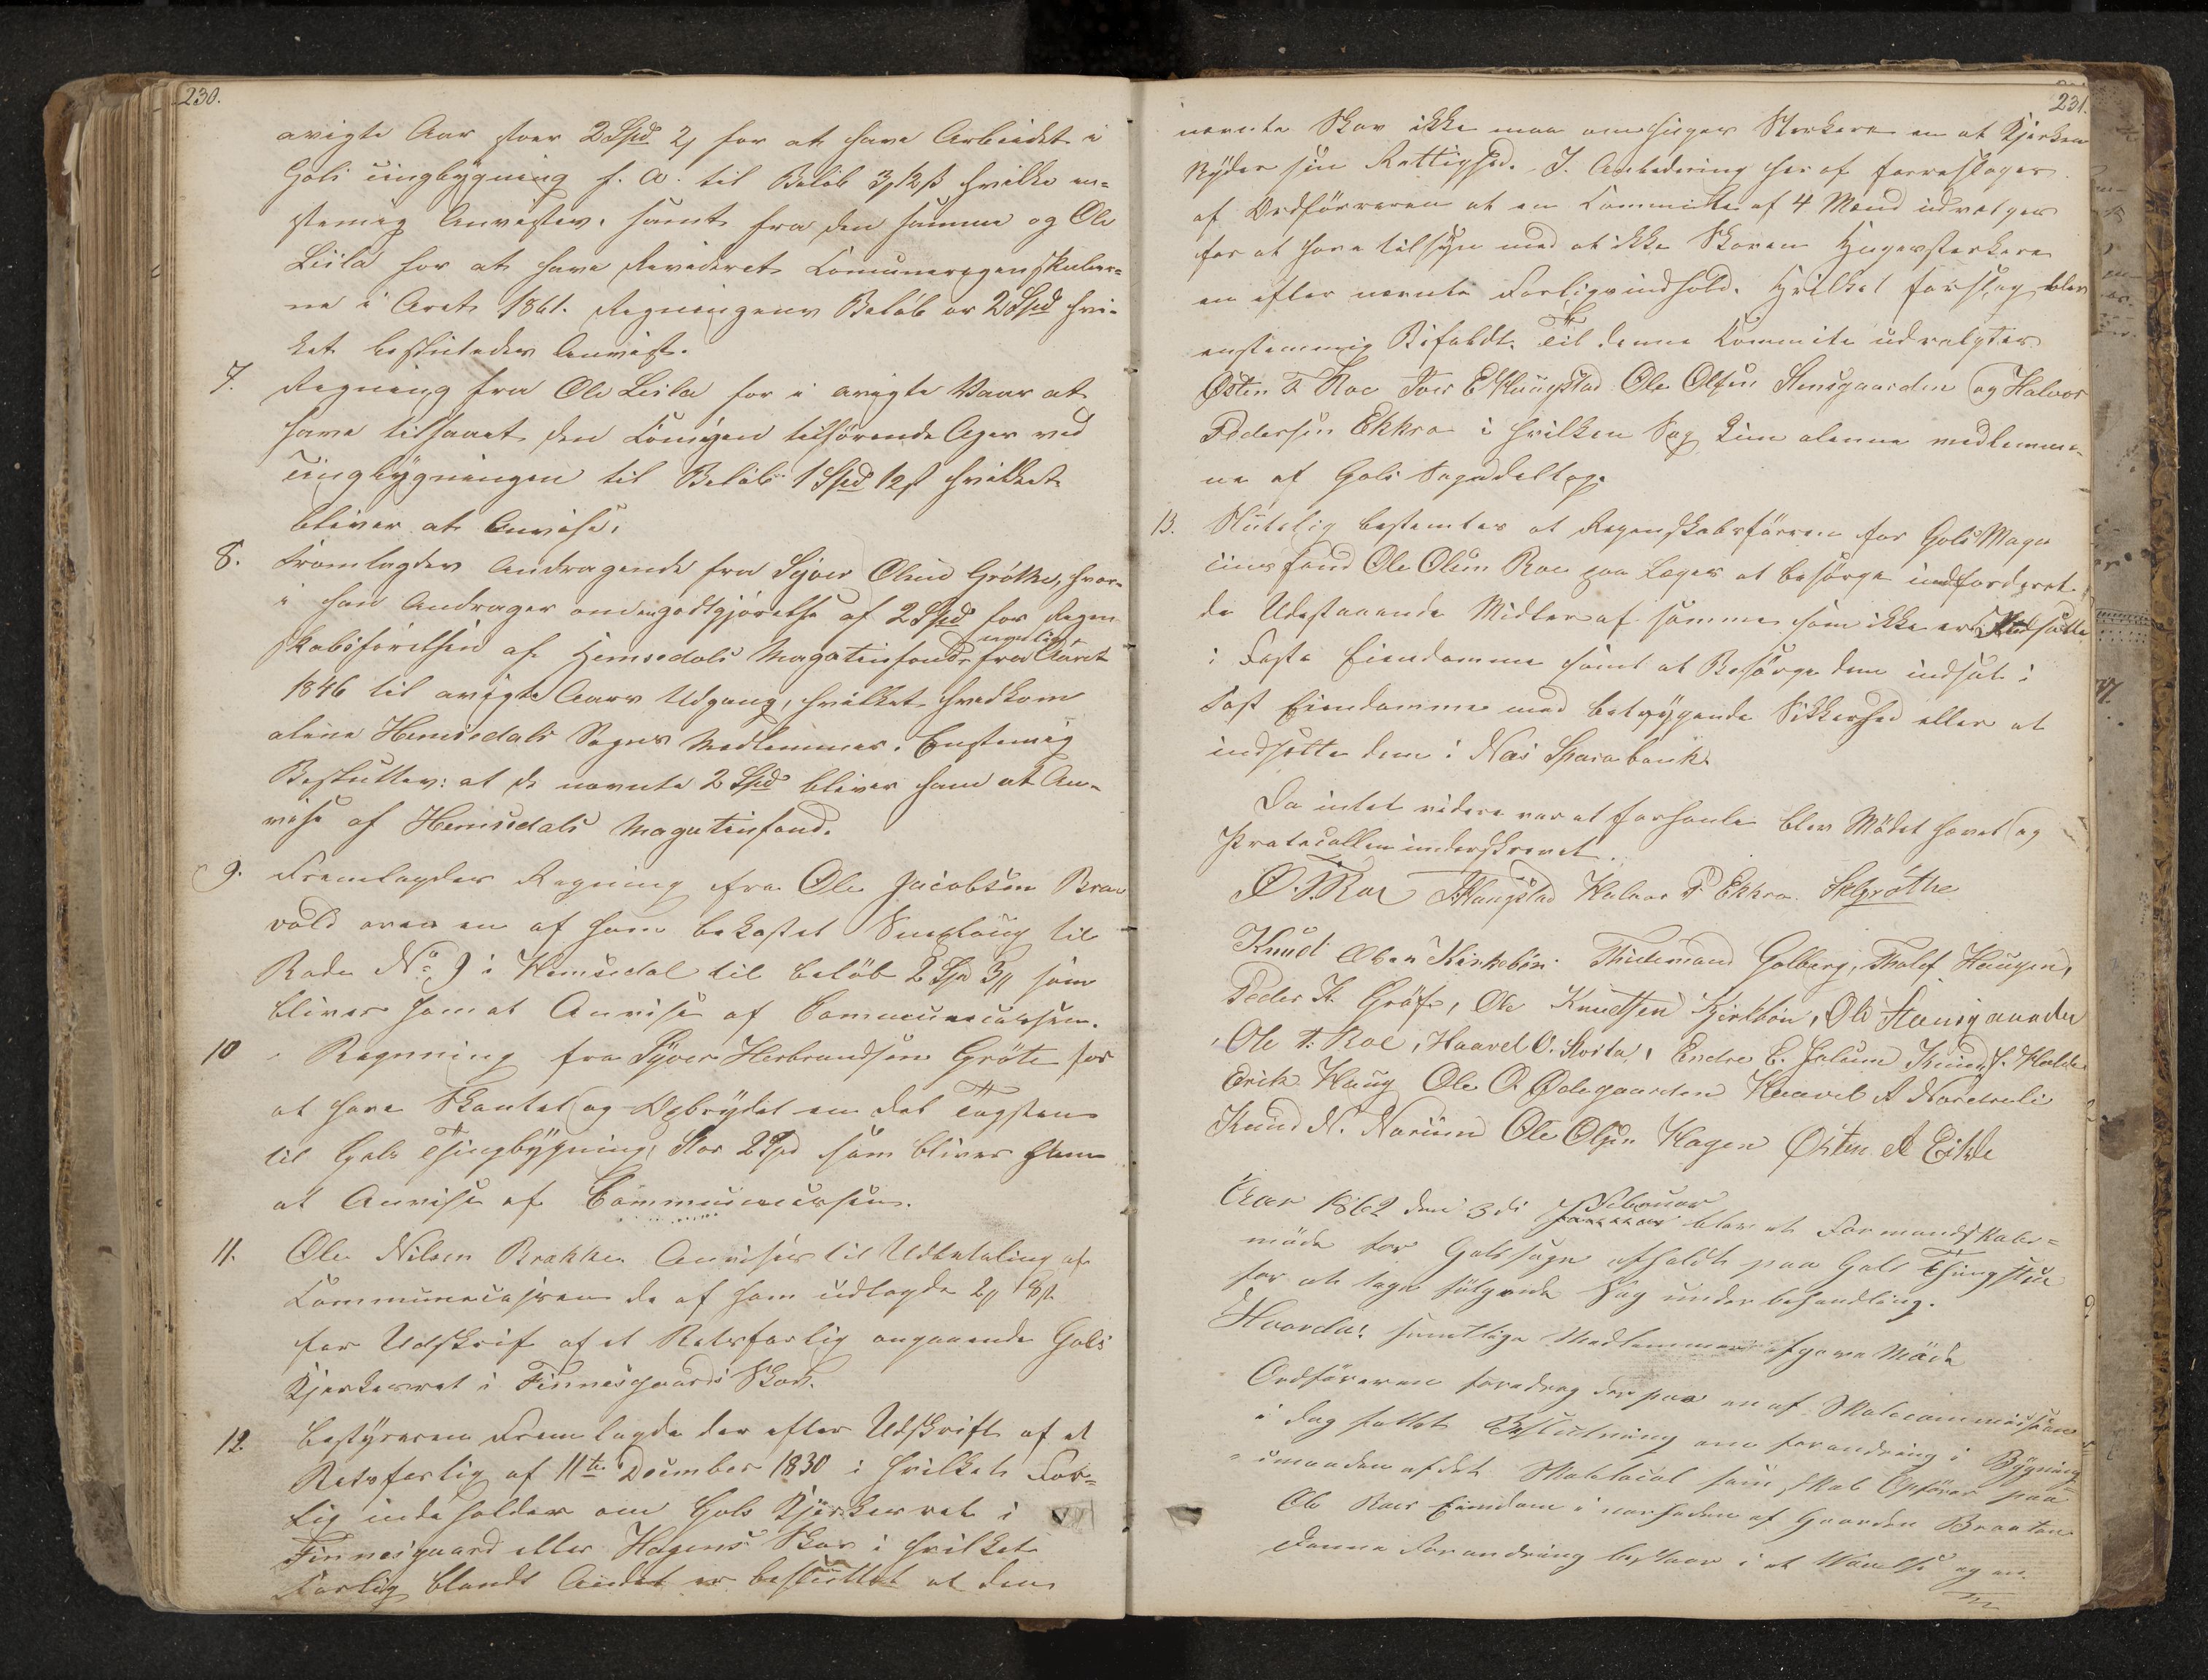 230.
avigte Aar stor 2 Spd 2 for at have Arbeidet i
Gols tingbygning f. A. til Beløb 3 12 ß hvilke en=
stemig Anvistes. samt fra den samme og Ole
Liila for at have Revideret Comuneregenskaber=
ne i Aret 1861. Regningens Beløb er 2 Spd hvi=
ket besluttedes Anvist.
7. Regning fra Ole Liila for i avigte Vaar at
have tilsaaet den Comunen tilhørende Ager ved
tingbygningen til Beløb 1 Spd 12 ß hvilket
bliver at Anvise.
8. Fremlagdes Andragende fra Syver Olsen Grøthe, hvor=
i han Andrager om en godtgjørelse af 2 Spd for Regen
skabsførelsen af Hemsedals Magasinfond nemlig fra Aaret
1846 til avigte Aars Udgang, hvilket vedkom
alene Hemsedals Sogns Medlemmer. Enstemig
Besluttes: at de nevnte 2 Spd bliver ham at An=
vise af Hemsedals Magasinfond.
9. Fremlagdes Regning fra Ole Jacobsen Braa
vold over en af ham bekostet Sneploug til
Rode No 9 i Hemsedal til beløb 2 Spd 3 som
bliver ham at Anvise af Communecassen.
10 Regnning fra Syver Herbrandsen Grøte for
at have Skantet og Opbrydet en del Tagsten
til Gols Thingbygning, Stor 2 Spd som bliver ham
at Anvise af Communecassen.
11. Ole Nilsen Brakke Anvises til Udbetaling af
Communecassen de af ham udlagde 2 18 ß
for Udskrif af et Retsforlig angaaende Gols
Kjerkesret i Finnesgaards Skov.
12. Bestyreren Fremlagde der efter Udskrift af et
Retsforlig af 11te December 1830 i hvilket For=
lig inde holdes om Gols Kjerkes ret i
Finnesgaard eller Hagens Skov i hvilket
Forlig blandt Andet er besluttet at den
231.
nevnte Skov ikke maa om hugges Sterkere en at Kjerken
Nyder sin Rettighed. I Anledning her af forresloges
af Ordførreren at en Committe af 4 Mand udvelges
for at have tilsyn med at ikke Skoven Hugges sterkere
en efter nevnte Forligs indhold. Hvilket forslag blev
enstemmig Bifaldt. Til denne Committe udvalgtes
Østen T Roe Tor E Haugstad Ole Olsen Stensgaarden og Halvor
Pedersen Ekkra i hvilken Sag kun alenne medlemme=
ne af Gols Sogn deltog.
13. Slutelig bestemtes at Regenskabsførren for Gols Maga
sins fond Ole Olsen Roe paa Lægges at besørge indfordret
de Udestaaende Midler af samme som ikke er Indsatte
i Faste Eiendomme samt at Besørge dem indsat i
Fast Eiendomme med betryggende Sikkerhed eller at
indsette dem i Næs Sparebank
Da intet videre var at forhandle blev Mødet hævet og
Protocollen underskrevet.
Ø. T. Roe T Haugstad Halvor P Ekkra. SHGrøthe
Knud Olsen Kirkebøn. Thidemand Golberg, Tholf Haugen,
Peder K. Gröf, Ole Knudsen Kirkbøn, Ole Stensgaarden
Ole T. Roe, Haavel O. Storla, Endre E. Jolum Knud J. Hulde
Erik Haug Ole O. Ødegaarden Haavel A Nordreli
Knud N. Norum Ole Olsen Hagen Østen A Eikle
Aar 1862 den 3di Februar blev et Formandskabs=
møde for Gols sogn afholdt paa Gols Thingstue
for at tage følgende Sag under behandling.
Hvorda: samtlige Medlemmer afgave Møde
Ordføreren foredrog derpaa en af Skolecommissionen
i dag fattet Beslutning om forandring i Bygnings
maaden af det Skolelocal som skal Opføres paa
Ole Roes Eiendom i nærheden af Gaarden Braaten
Denne Forandring bestaar i at og en